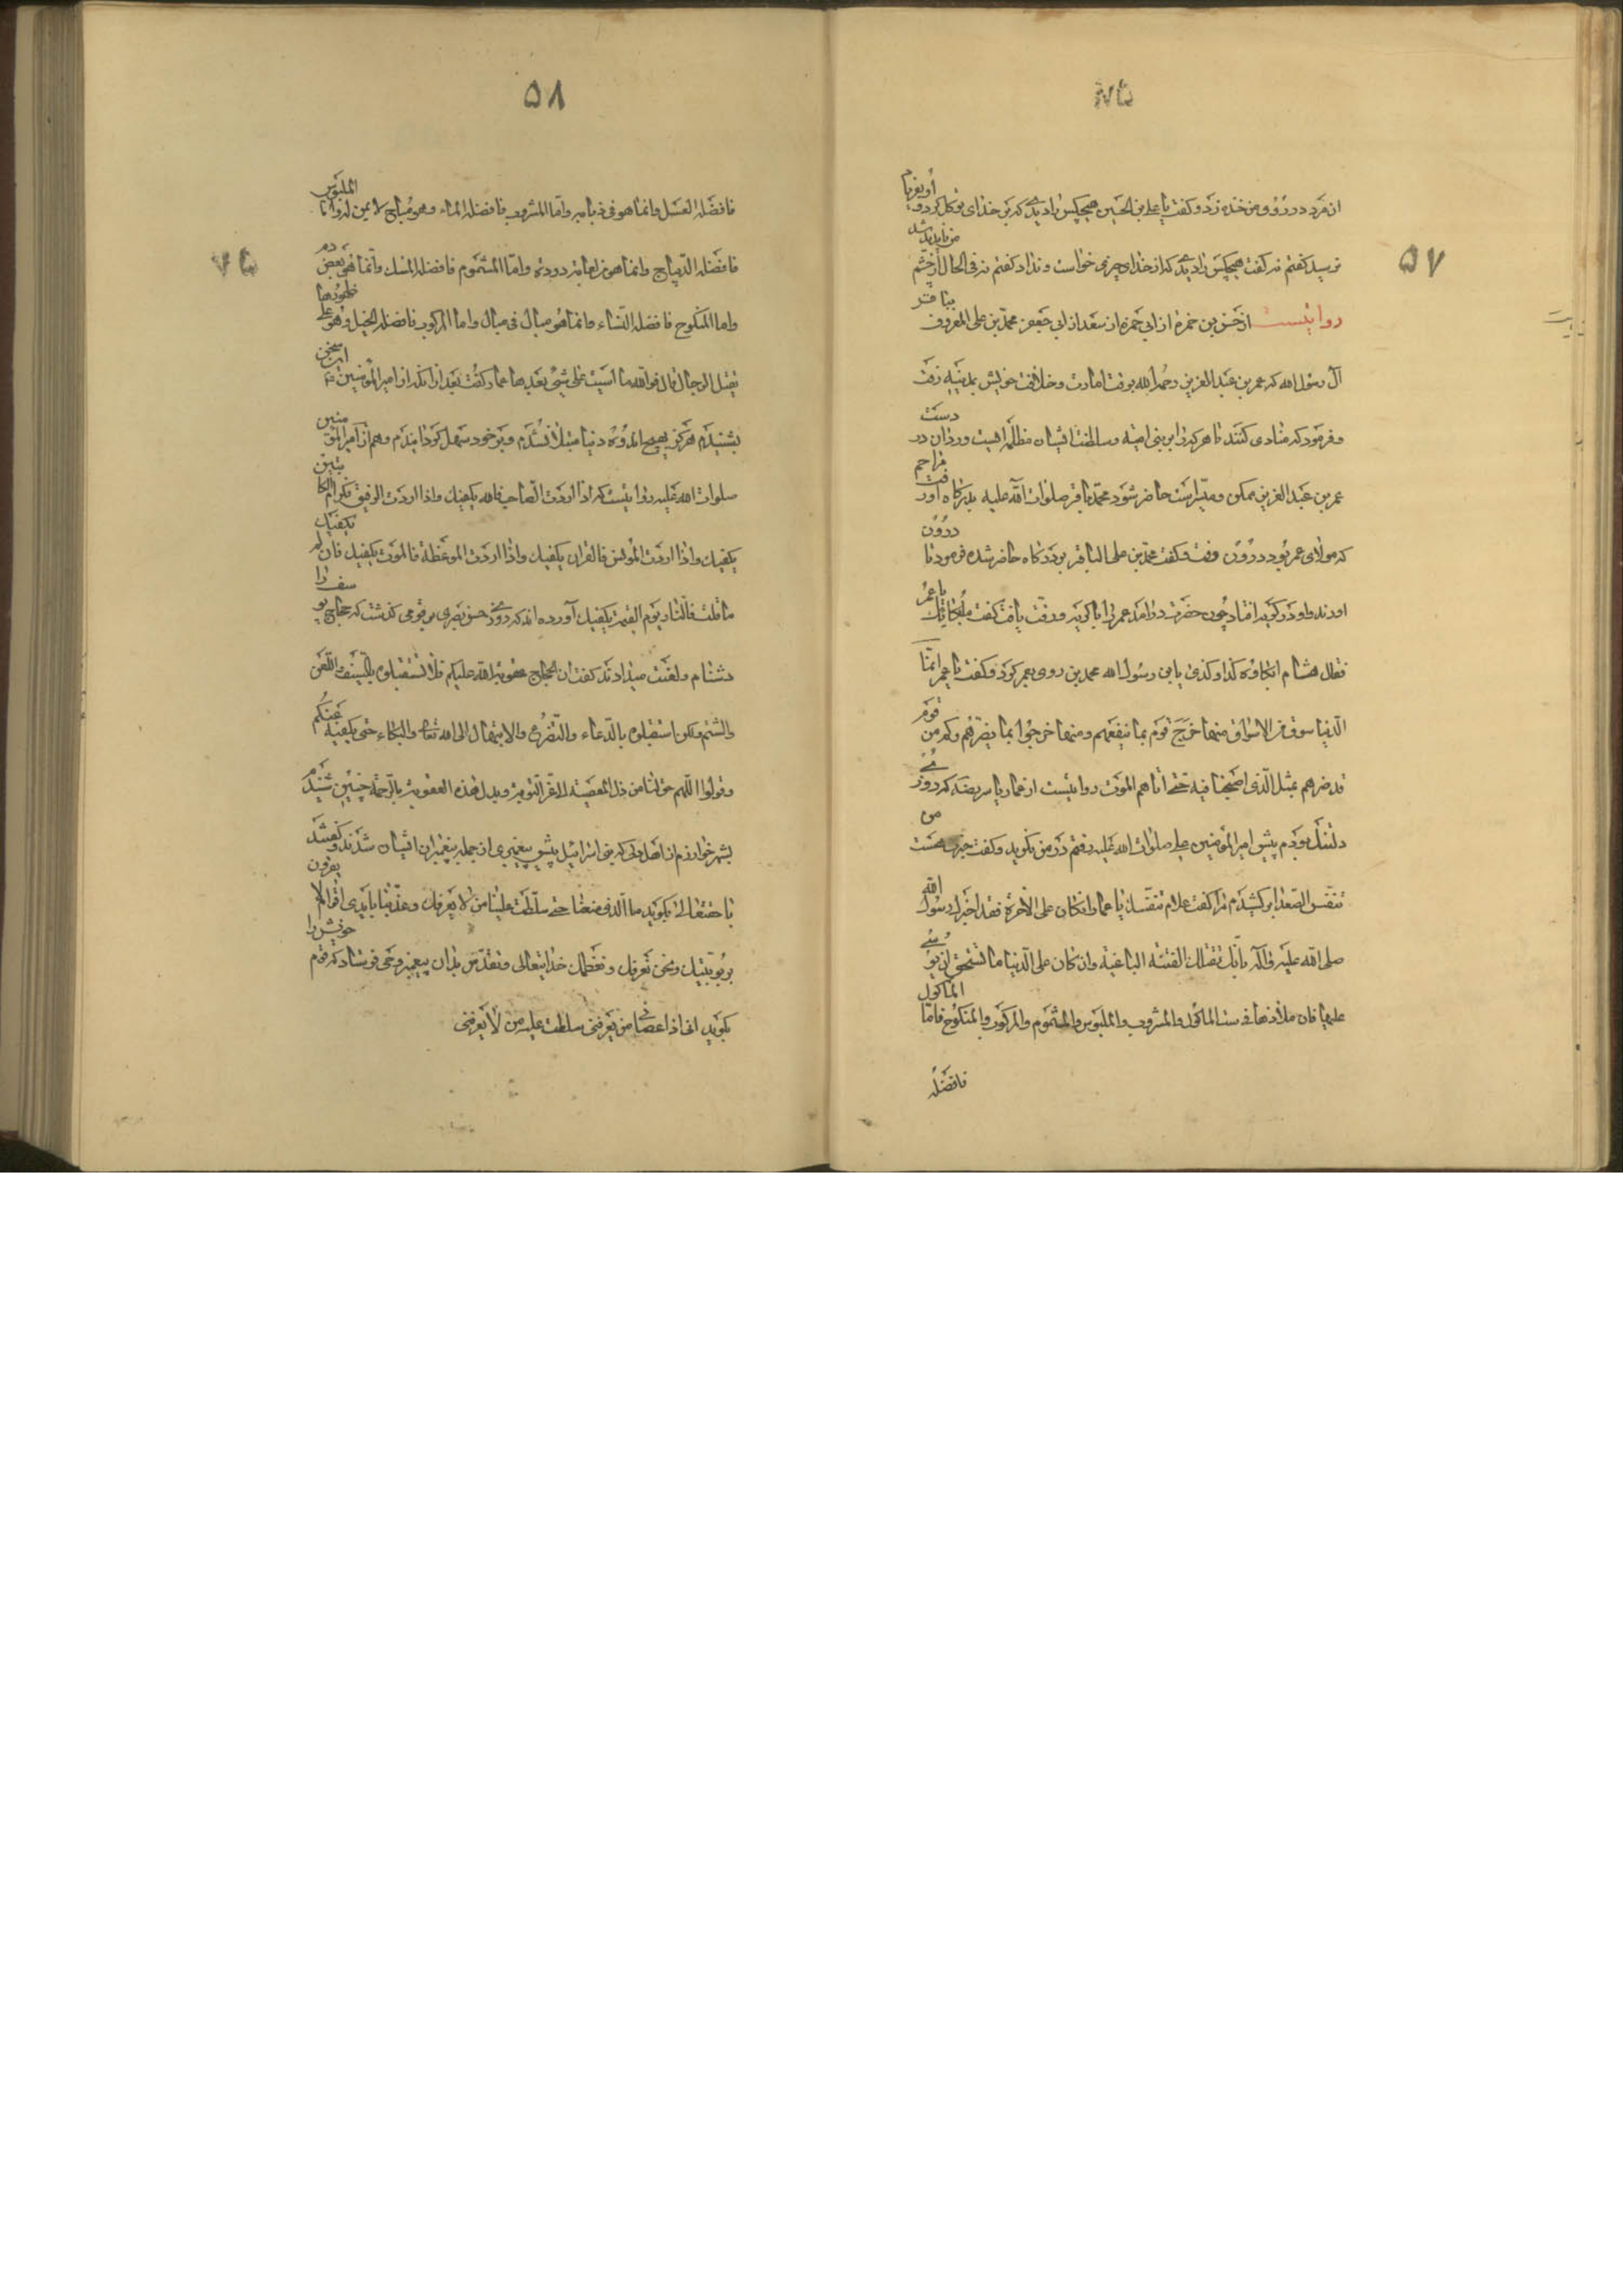 ۵۷
ازمرد در رو و من خنده زد و کفت یا علی بن الحسین هیچکس را دیدی که بر خدای توکل کرد و او بفریاد
نرسید کفتم نه کفت هیچکس را دیدی که از خدای چیزی خواست و نداد کفتم نه فی الحال از چشم من ناپدید شد
روایتست از حسن بن حمزه از ابی حمزه از سعد از ابی جعفر محمد بن علی المعروف بباقر
آل رسول الله که عمر بن عبد العزیز رحمه الله بوقت امارت و خلافت خویش بمدینه رفت
و فرمود که منادی کنند تا هر که را بر بنی امیه و سلطنت ایشان مظلمه ایست ورد آن در دست
عمر بن عبد العزیز ممکن و میسر است حاضر شود محمد باقر صلوات الله علیه بدرکاه او رفت مزاحم
که مولای عمر بود درون رفت و کفت محمد بن علی الباقر بر درکاه حاضر شده فرمود تا درون
اوردند و او در کریه افتاد چون حضرت درامد عمر را با کریه و رقت یافت کفت ما بکائک یا عمر
فقال هشام ابکاوه کذا و کذی یا ابن رسول الله محمد بن روی بعمر کرد و کفت یا عمر انما
الدنیا سوق من الاسواق منها خرج قوم بما ینفعهم و منها خرجوا بما یضرهم و کم من قوم
قد ضرهم بمثل الذی اصبحنا فیه حتی اتاهم الموت روایتست از عمار یاسر رضه که روزی
دلتنک بودم پیش امیر المؤمنین علی صلوات الله علیه رفتم در من نکرید و کفت خیر هست من
تنفس الصعدا بر کشیدم مرا کفت علام تنفسک یا عمار ان کان علی الاخرة فقد اخبرک رسول الله
صلی الله علیه و آله بانک تقتلک الفئة الباغیة و ان کان علی الدنیا ما تستحق ان یؤسی
علیها فان ملاذها فی ست الماکول و المشروب و الملبوس و المشموم و المرکوب و المنکوح فاما الماکول
فافضله
۵۸
فافضله العسل و انما هو فی ذبابه و اما المشروب فافضله الماء و هو مباح لا ثمن له و اما الملبوس
فافضله الدیباج و انما هو من لعابة دودة و اما المشموم فافضله المسک و انما هی بعض دم
و اما المنکوح فافضله النساء و انما هو مبال فی مبال و اما المرکوب فافضله الخیل و هو علی ظهورها
یقتل الرجال قال فوالله ما اسیت علی شئ بعدها عمار کفت بعد از انکه از امیر المؤمنین ع این سخن
بشنیدم هرکز بهیچ اندوه دنیا مبتلا نشدم و بر خود سهل کردانیدم و هم از امیر المؤمنین
صلوات الله علیه روایتست که اذا اردت الصاحب فالله یکفیک و اذا اردت الرفیق فکرام الکاتبین
یکفیک و اذا اردت المونس فالقران یکفیک و اذا اردت الموعظة فالموت یکفیک فان لم یکفیک
ما قلت فالنار یوم القیمة یکفیک آورده اند که روزی حسن بصری بر قومی کذشت که حجاج یوسف را
دشنام و لعنت میدادند کفت ان الحجاج عقوبة الله علیکم فلا تستقبلوه بالسیف و اللعن
و الشتم ولکن استقبلوه بالدعاء و التضرع و الابتهال الی الله تعالی و البکاء حتی یکفیه عنکم
و قولوا اللهم حولنا من ذل المعصیة الی عز التوبة و بدل هذه العقوبة بالرحمة چنین شنیدم
بشهر خوارزم از اهل دلی که بنی اسرائیل پیش پیغمبری از جمله پیغمبران ایشان شدند و کفتند
با حقتعالی بکوید ما الذی صنعنا حتی سلطت علینا من لا یعرفک و عذبتنا بایدی اقوام لا یعرفون
بربوبیتک و نحن نعرفک و نعظمک خدایتعالی و تقدس بدان پیغمبر وحی فرستاد که قوم خویش را
بکوید انی اذا عصانی من یعرفنی سلطت علیه من لا یعرفنی